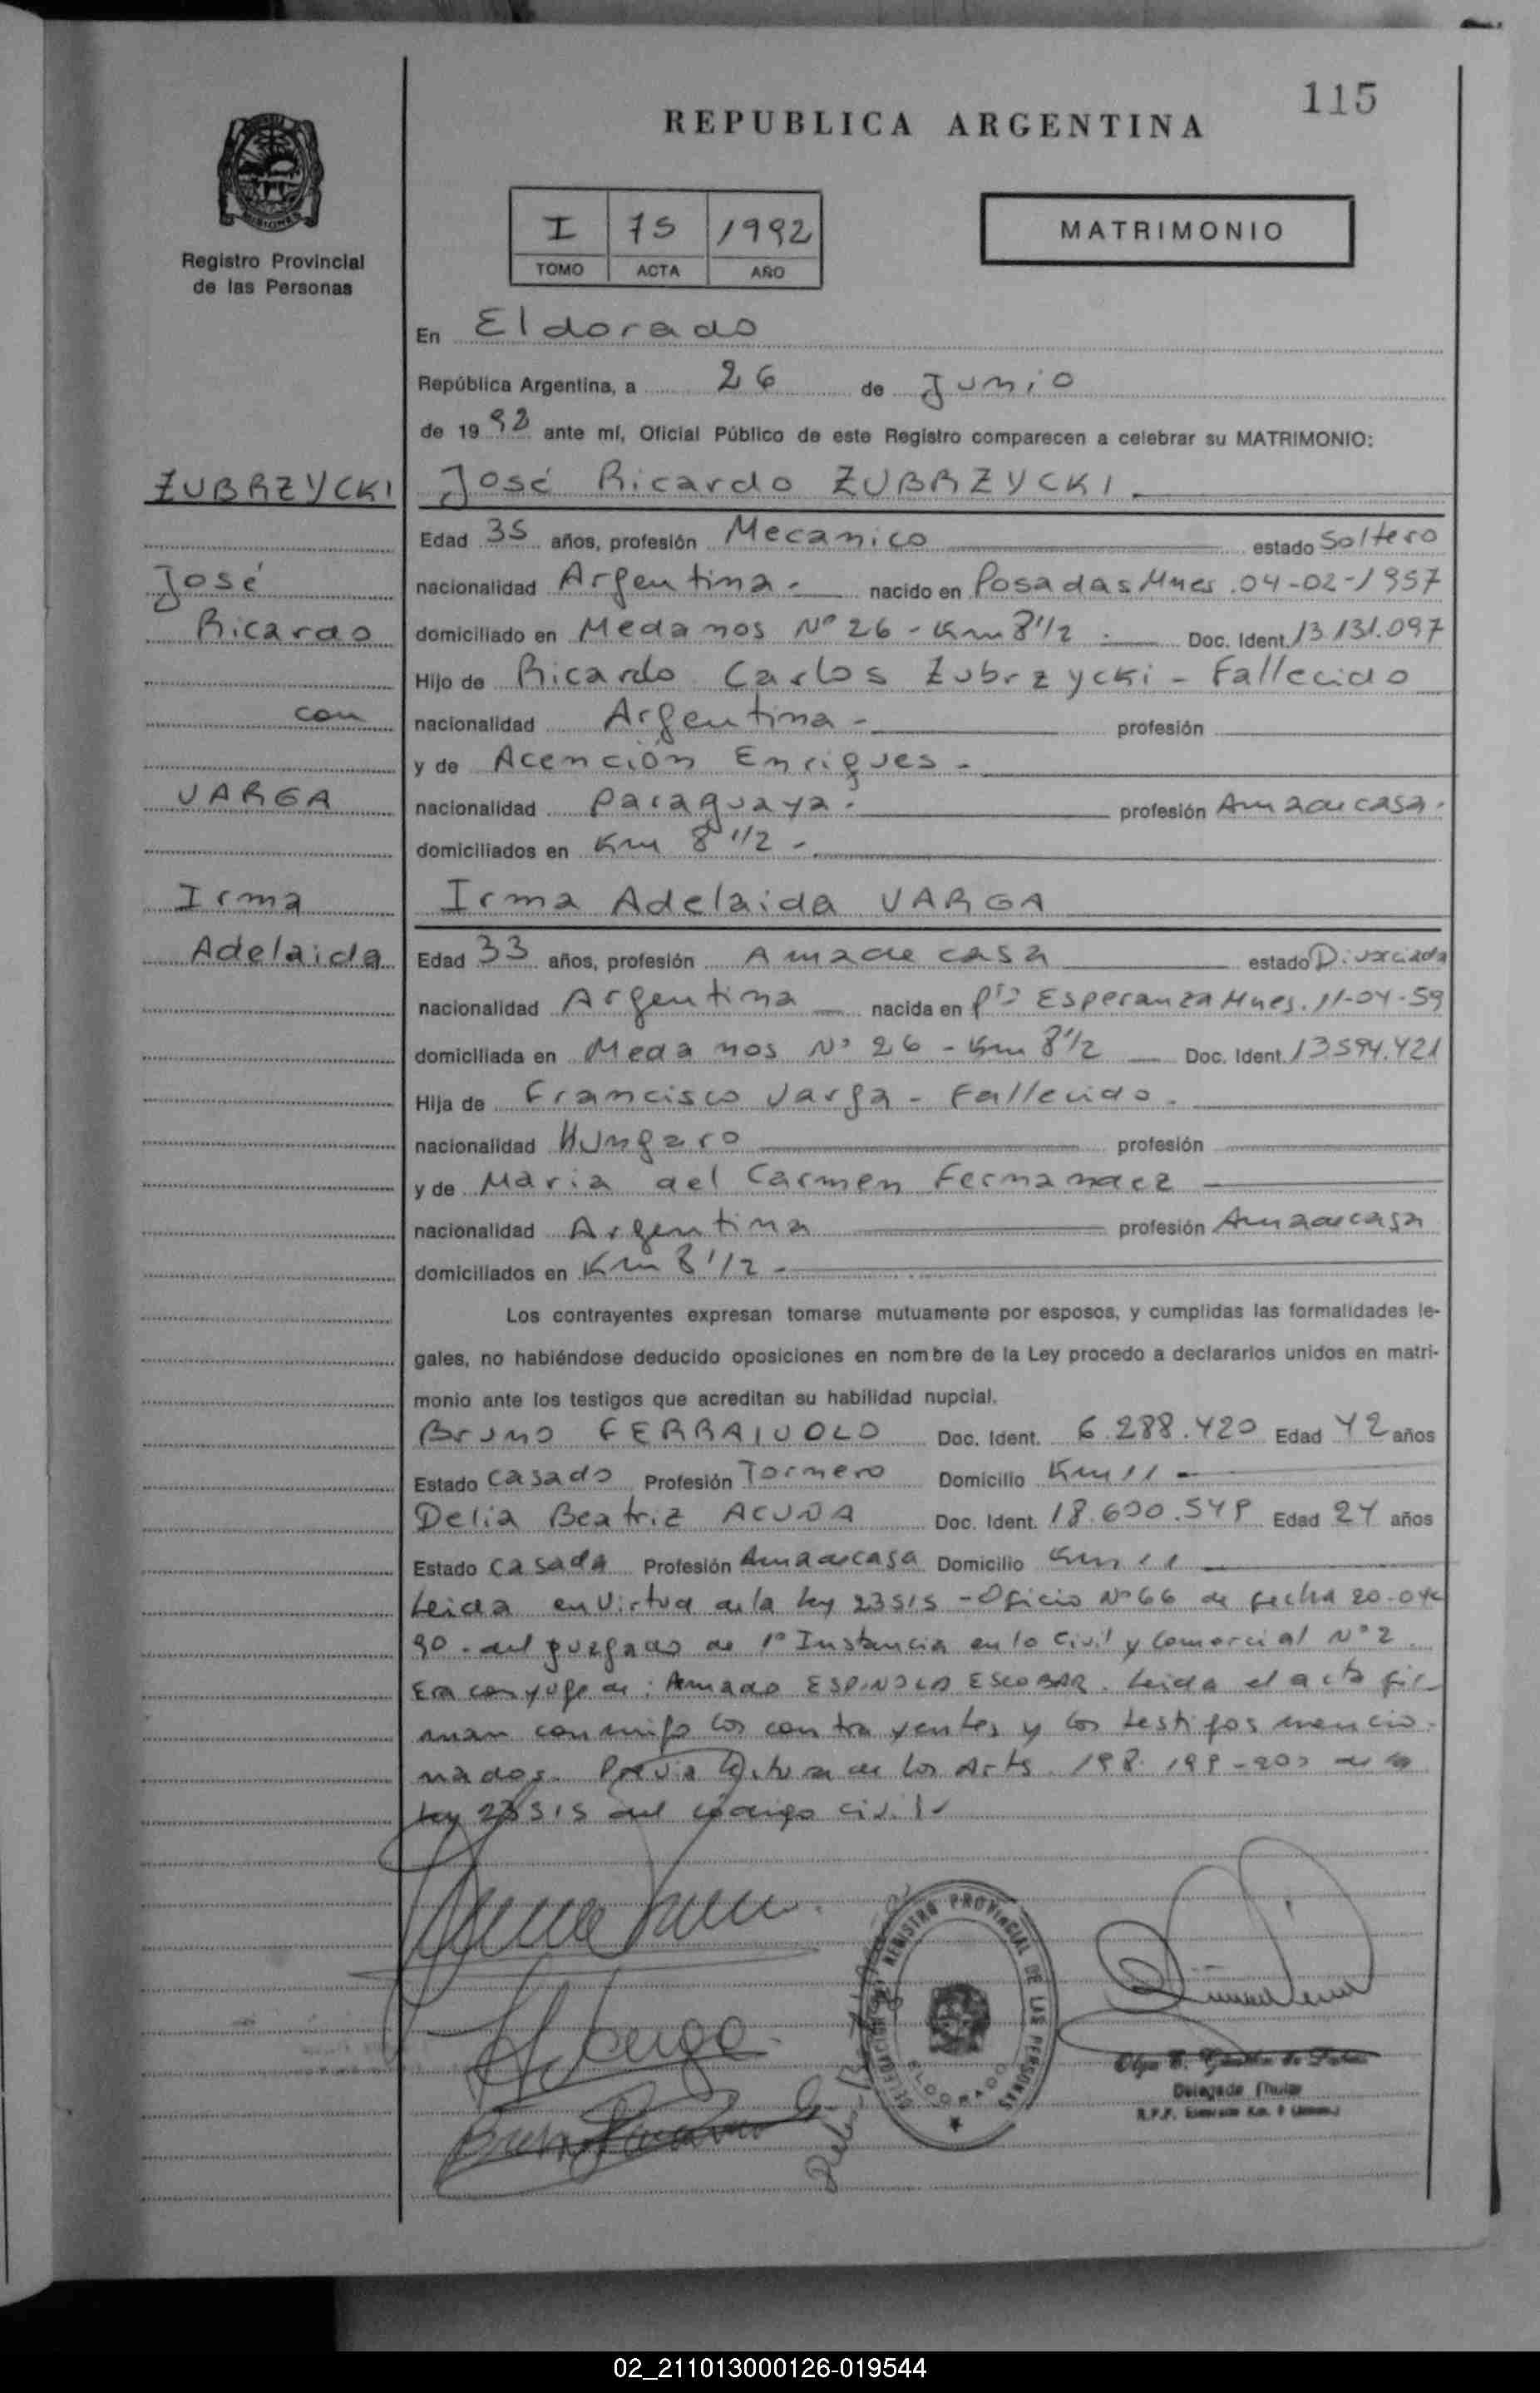 115
REPUBLICA ARGENTINA
MISIONES
Registro Provincial
de las Personas
I 75 1992
TOMO ACTA AÑO
MATRIMONIO
En Eldorado
República Argentina, a 26 de Junio
de 1992 ante mí, Oficial Público de este Registro comparecen a celebrar su MATRIMONIO:
ZUBRZYCKI
José
Ricardo
con
VARGA
Irma
Adelaida
José Ricardo ZUBRZYCKI
Edad 35 años, profesión Mecanico estado Soltero
nacionalidad Argentina.- nacido en Posadas Mnes. 04-02-1957
domiciliado en Medanos Nº 26 - Km 8 1/2 . Doc. Ident. 13.131.097
Hijo de Ricardo Carlos Zubrzycki - Fallecido
nacionalidad Argentina - profesión
y de Acención Enriques -
nacionalidad Paraguaya . profesión Ama de casa .
domiciliados en Km 8 1/2 -
Irma Adelaida VARGA
Edad 33 años, profesión Ama de casa estado Divorciada
nacionalidad Argentina nacida en Pto Esperanza Mnes. 11-04-59
domiciliada en Medanos Nº 26 - Km 8 1/2 Doc. Ident. 13594.421
Hija de Francisco Varga - Fallecido -
nacionalidad Hungaro profesión
y de Maria del Carmen Fernandez
nacionalidad Argentina profesión Ama de casa
domiciliados en Km 8 1/2 -
Los contrayentes expresan tomarse mutuamente por esposos, y cumplidas las formalidades le-
gales, no habiéndose deducido oposiciones en nombre de la Ley procedo a declararlos unidos en matri-
monio ante los testigos que acreditan su habilidad nupcial.
Bruno FERRAIUOLO Doc. Ident. 6.288.420 Edad 42 años
Estado Casado Profesión Tornero Domicilio Km 11 -
Delia Beatriz ACUÑA Doc. Ident. Edad 24 años
Estado Casada Profesión Ama de casa Domicilio Km 11
Leida en virtud de la Ley 23515 - Oficio Nº 66 de fecha 20-04-
90 - del Juzgado de 1º Instancia en lo Civil y Comercial Nº 2
Era conyuge de : Amado ESPINOLA ESCOBAR. Leida el acta fir-
man conmigo los contrayentes y los testigos mencio-
nados. Previa lectura de los Arts. 198. 199 - 200 de la
Ley 23515 del código civil.-
Varga
REGISTRO PROVINCIAL DE LAS PERSONAS
ELDORADO
Delegada Titular
02_211013000126-019544